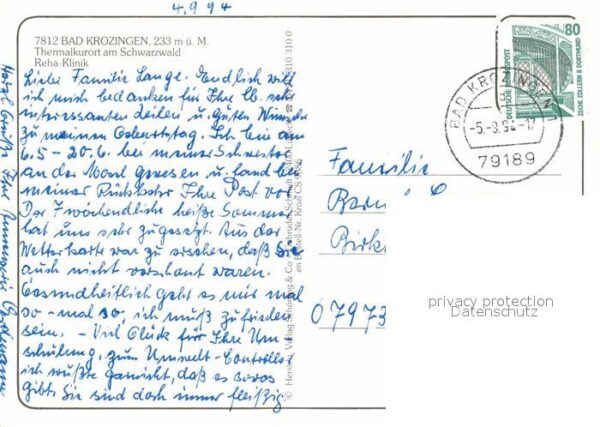 4.9.94
7812 BAD KROZINGEN, 233 m ü. M.
Thermalkurort am Schwarzwald
Reha-Klinik
Liebe Familie Lange. Endlich will
ich mich bedanken für Ihre lb. sehr
interessanten Zeilen u. guten Wünsche
zu meinem Geburtstag. Ich bin am
6.5 - 20.6. bei meiner Schwester
an der Mosel gewesen u. fand bei
meiner Rückkehr Ihre Post vor.
Der 7 wöchentliche heiße Sommer
hat uns sehr zugesetzt. Aus der
Wetterkarte war zu ersehen, daß Sie
auch nicht verschont waren.
Gesundheitlich geht es mir mal
so - mal so, ich muß zufrieden
sein. - Viel Glück für Ihre Um
schulung, zum Umwelt-Controller
ich wußte garnicht, daß es sowas
gibt. Sie sind doch immer fleißig
Herzl. Grüße Ihre
80
DEUTSCHE BUNDESPOST
ZECHE ZOLLERN II DORTMUND
BAD KROZINGEN
79189
Familie
Birke
07973
privacy protection
Datenschutz